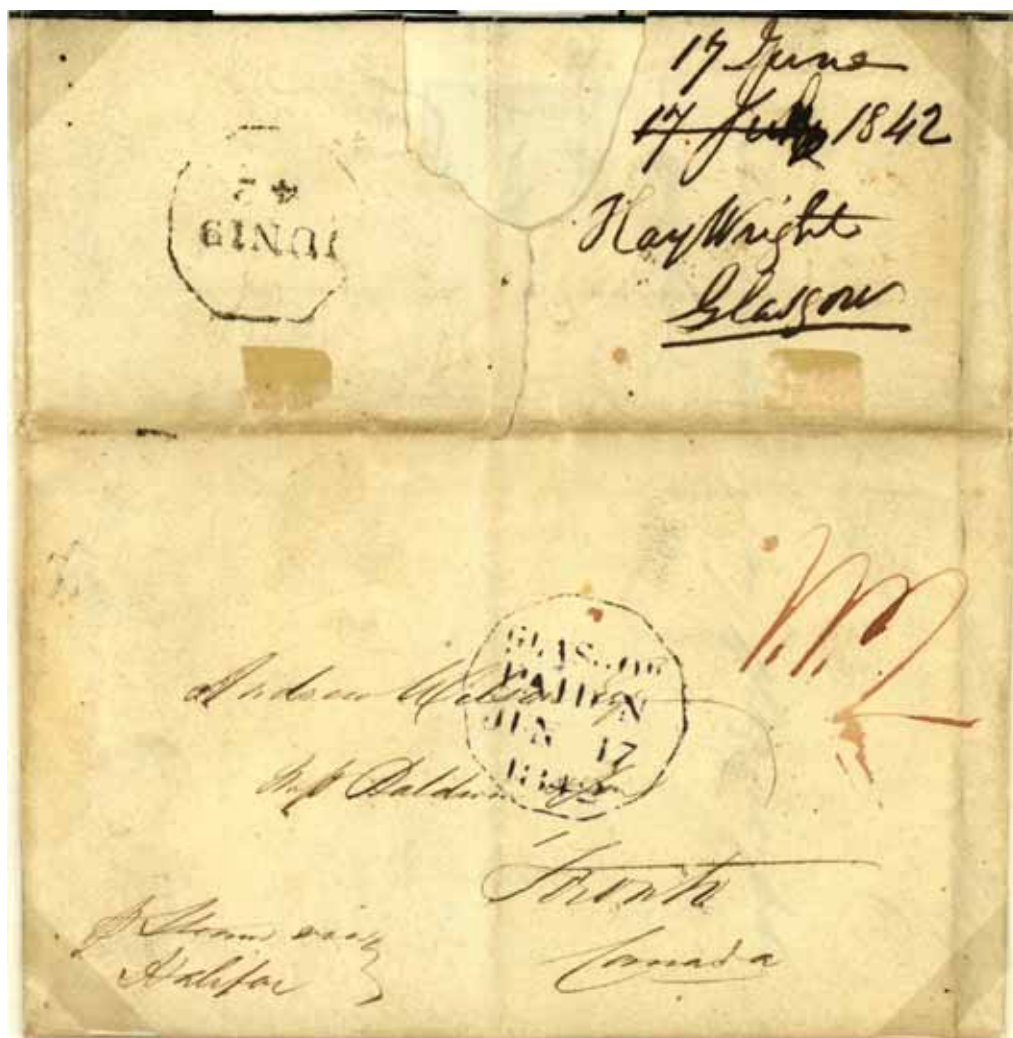 17 June
17 July 1842
Hay Wright
Glasgow
JUN19
42
GLASGOW
PAID
JUN 17
1842
Andrew Wilson Esq
Baldwin & Son
Toronto
Canada
Steam via
Halifax